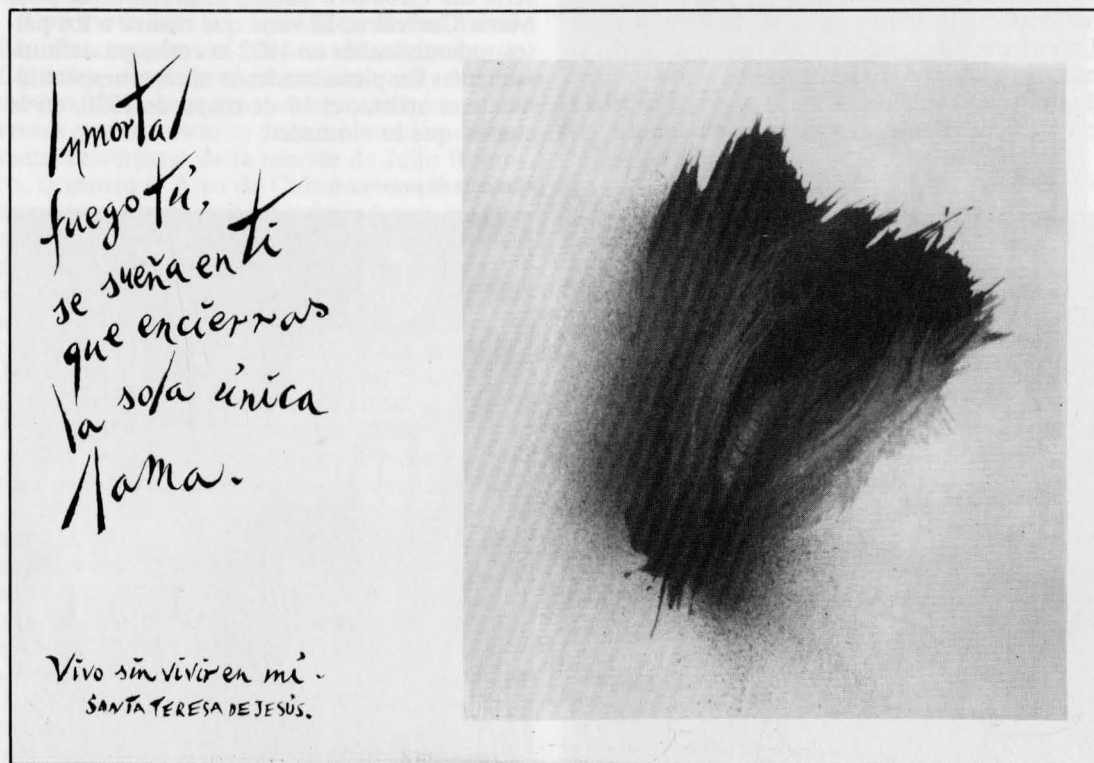 Inmortal
fuego tú,
se sueña en ti
que encierras
la sola única
llama.
Vivo sin vivir en mí -
SANTA TERESA DE JESÚS.